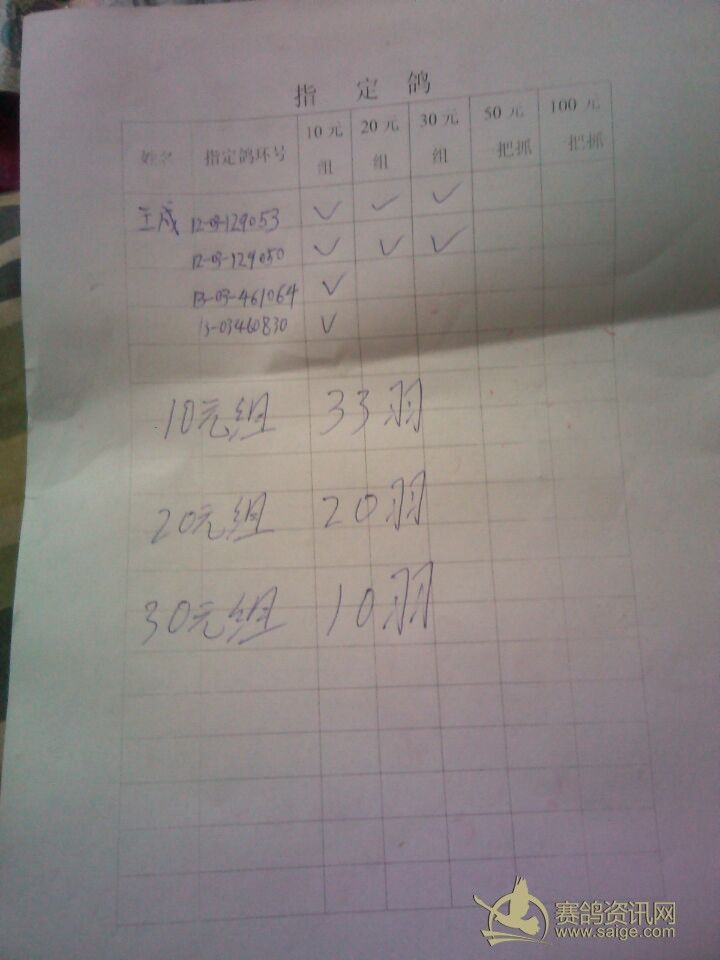 指定鸽
姓名 指定鸽环号 10元组 20元组 30元组 50元一把抓 100元一把抓
王成 12-03-129053 ✓ ✓ ✓
12-03-129050 ✓ ✓ ✓
13-03-461064 ✓
13-03460830 ✓
10元组 33羽
20元组 20羽
30元组 10羽
赛鸽资讯网
www.saige.com